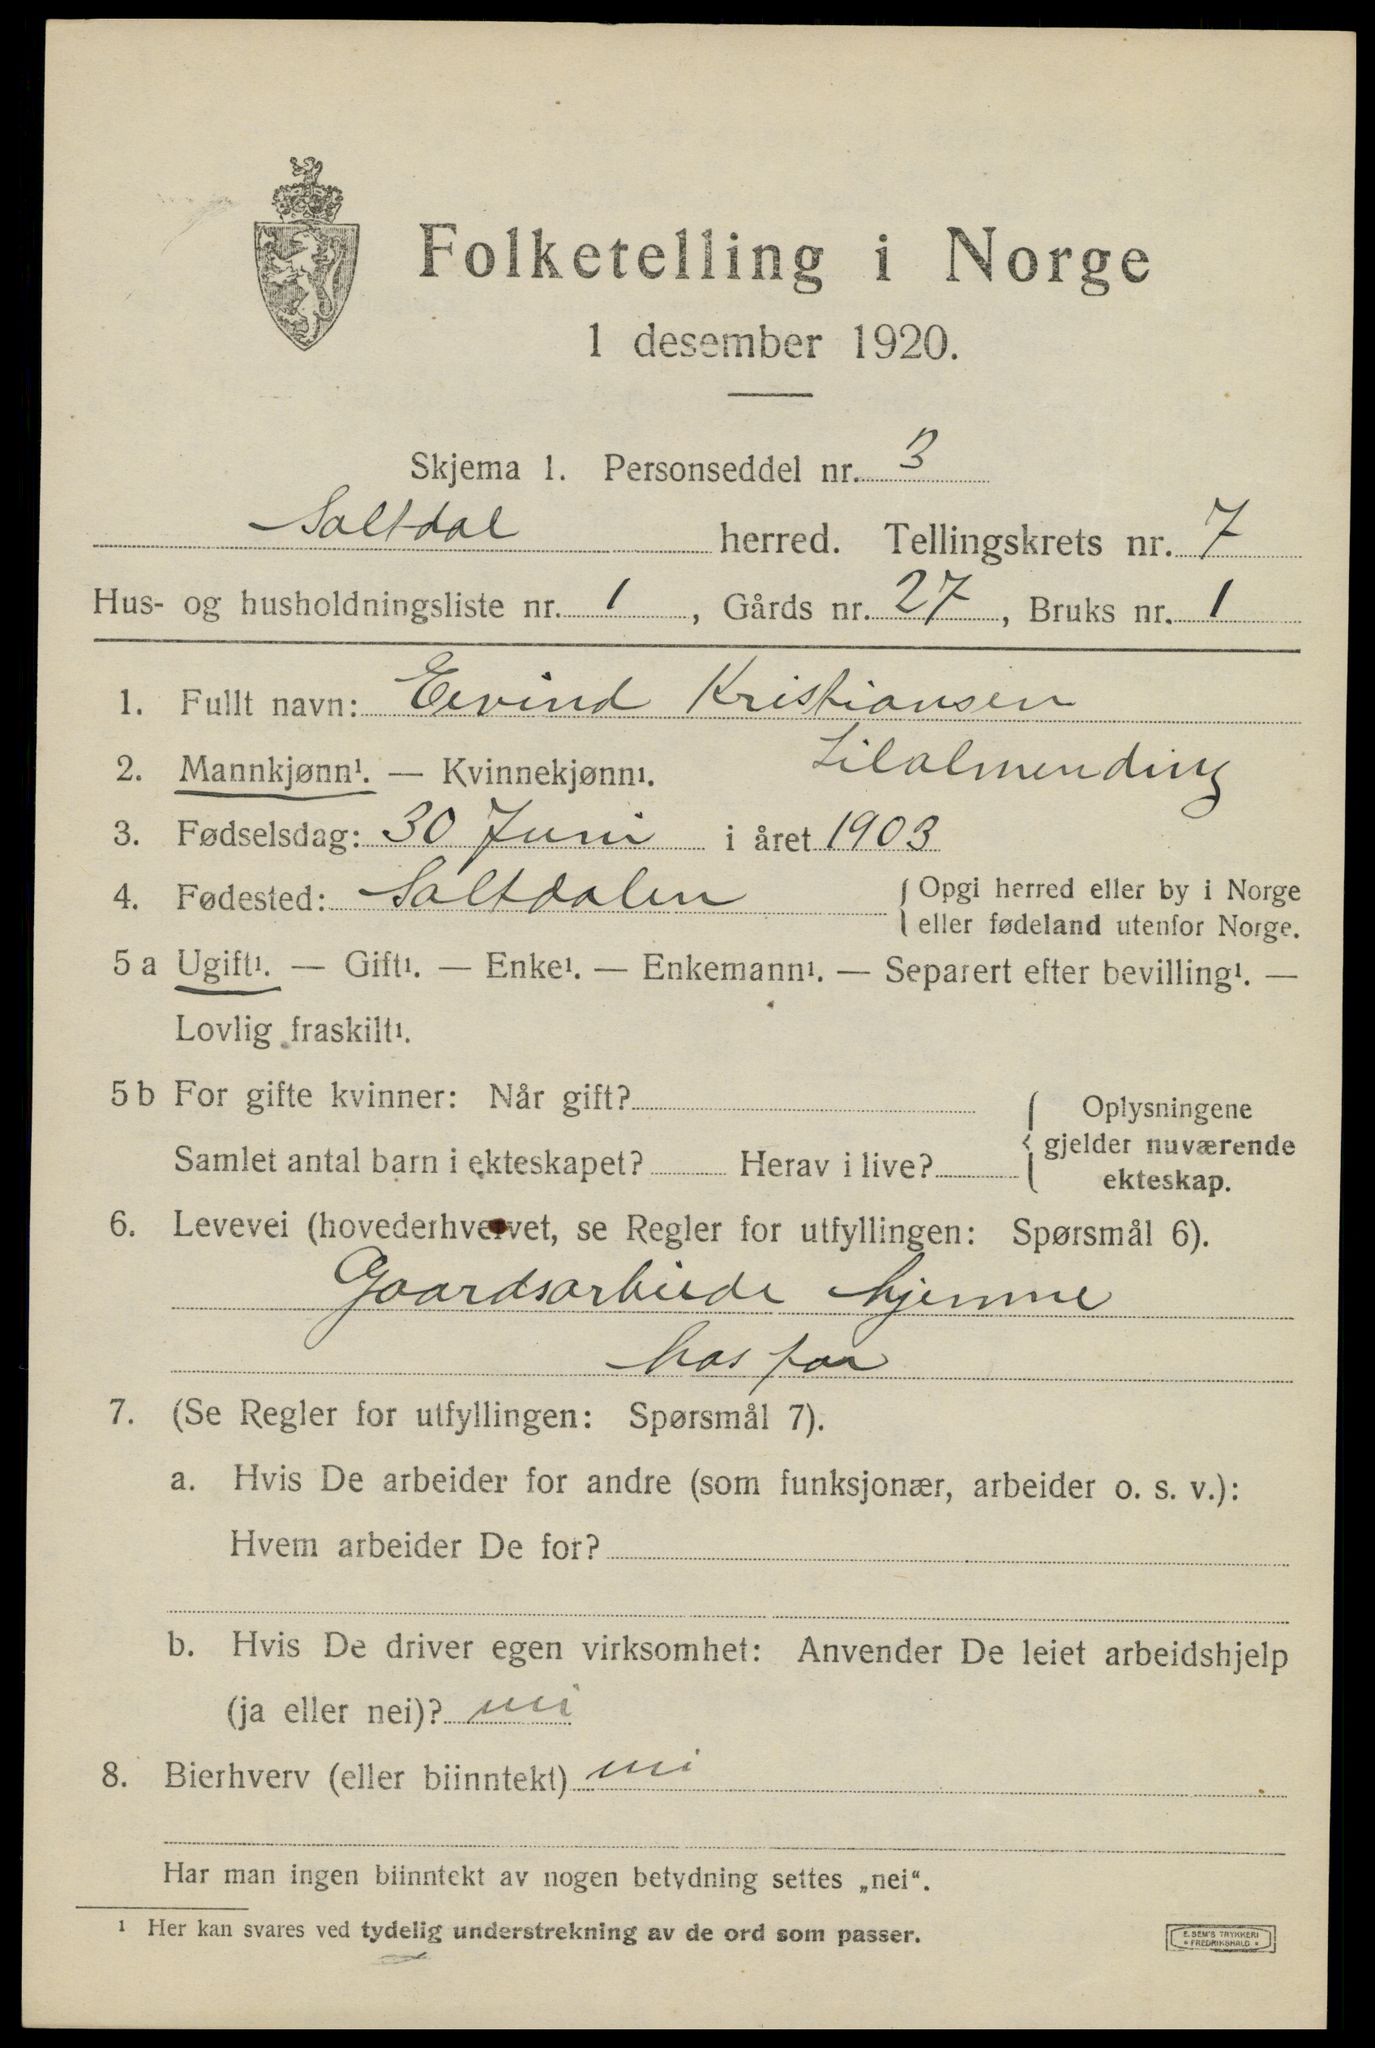 Folketelling i Norge
1 desember 1920.
Skjema 1. Personseddel nr. 3
Saltdal herred. Tellingskrets nr. 7
Hus- og husholdningsliste nr. 1, Gårds nr. 27, Bruks nr. 1
1. Fullt navn: Eivind Kristiansen
Lilalmending
2. Mannkjønn¹. — Kvinnekjønn¹.
3. Fødselsdag: 30 Juni i året 1903
4. Fødested: Saltdalen { Opgi herred eller by i Norge
eller fødeland utenfor Norge.
5 a Ugift¹. — Gift¹. — Enke¹. — Enkemann¹. — Separert efter bevilling¹. —
Lovlig fraskilt¹.
5 b For gifte kvinner: Når gift?
Samlet antal barn i ekteskapet? Herav i live?
Oplysningene
gjelder nuværende
ekteskap.
6. Levevei (hovederhvervet, se Regler for utfyllingen: Spørsmål 6).
Gaardsarbeide hjemme
hos far
7. (Se Regler for utfyllingen: Spørsmål 7).
a. Hvis De arbeider for andre (som funksjonær, arbeider o. s. v.):
Hvem arbeider De for?
b. Hvis De driver egen virksomhet: Anvender De leiet arbeidshjelp
(ja eller nei)? nei
8. Bierhverv (eller biinntekt) nei
Har man ingen biinntekt av nogen betydning settes „nei“.
¹ Her kan svares ved tydelig understrekning av de ord som passer.
E. SEM'S TRYKKERI
* FREDRIKSHALD *